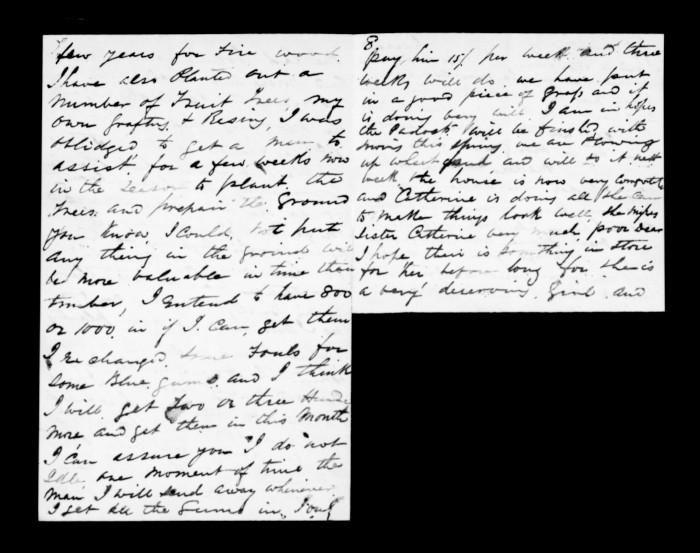 few years for Fire wood.
I have also Planted out a
Number of Fruit Trees, my
own Grafting, & Resing, I was
oblidged to get a man to
assist for a few weeks now
in the season to plant the
Trees and prepair the Ground
you know, I could, not put
any thing in the ground will
be more valuable in time then
timber, I Entend to have 800
or 1000 in if I can, get them
I Exchanged, some Fouls for
some Blue, gums, and I think
I will, get Two or three
more and get them in this Month
I can assure you I do not
Idle one moment of time the
Man I will send away whenever
I get all the Gums in, I only
8
pay him 15/ per week and three
weeks will do. we have put
in a good piece of Grass and it
is doing very well, I am in hopes
the Padock will be finished with
this spring, we are Plowing
up what and will it next
week the house is now very
and Catherine is doing all she can
to make things look well, she misses
Sister Catherine very much, poor Dear
I hope their is something in store
for her before long for she is
a very deserving Girl and